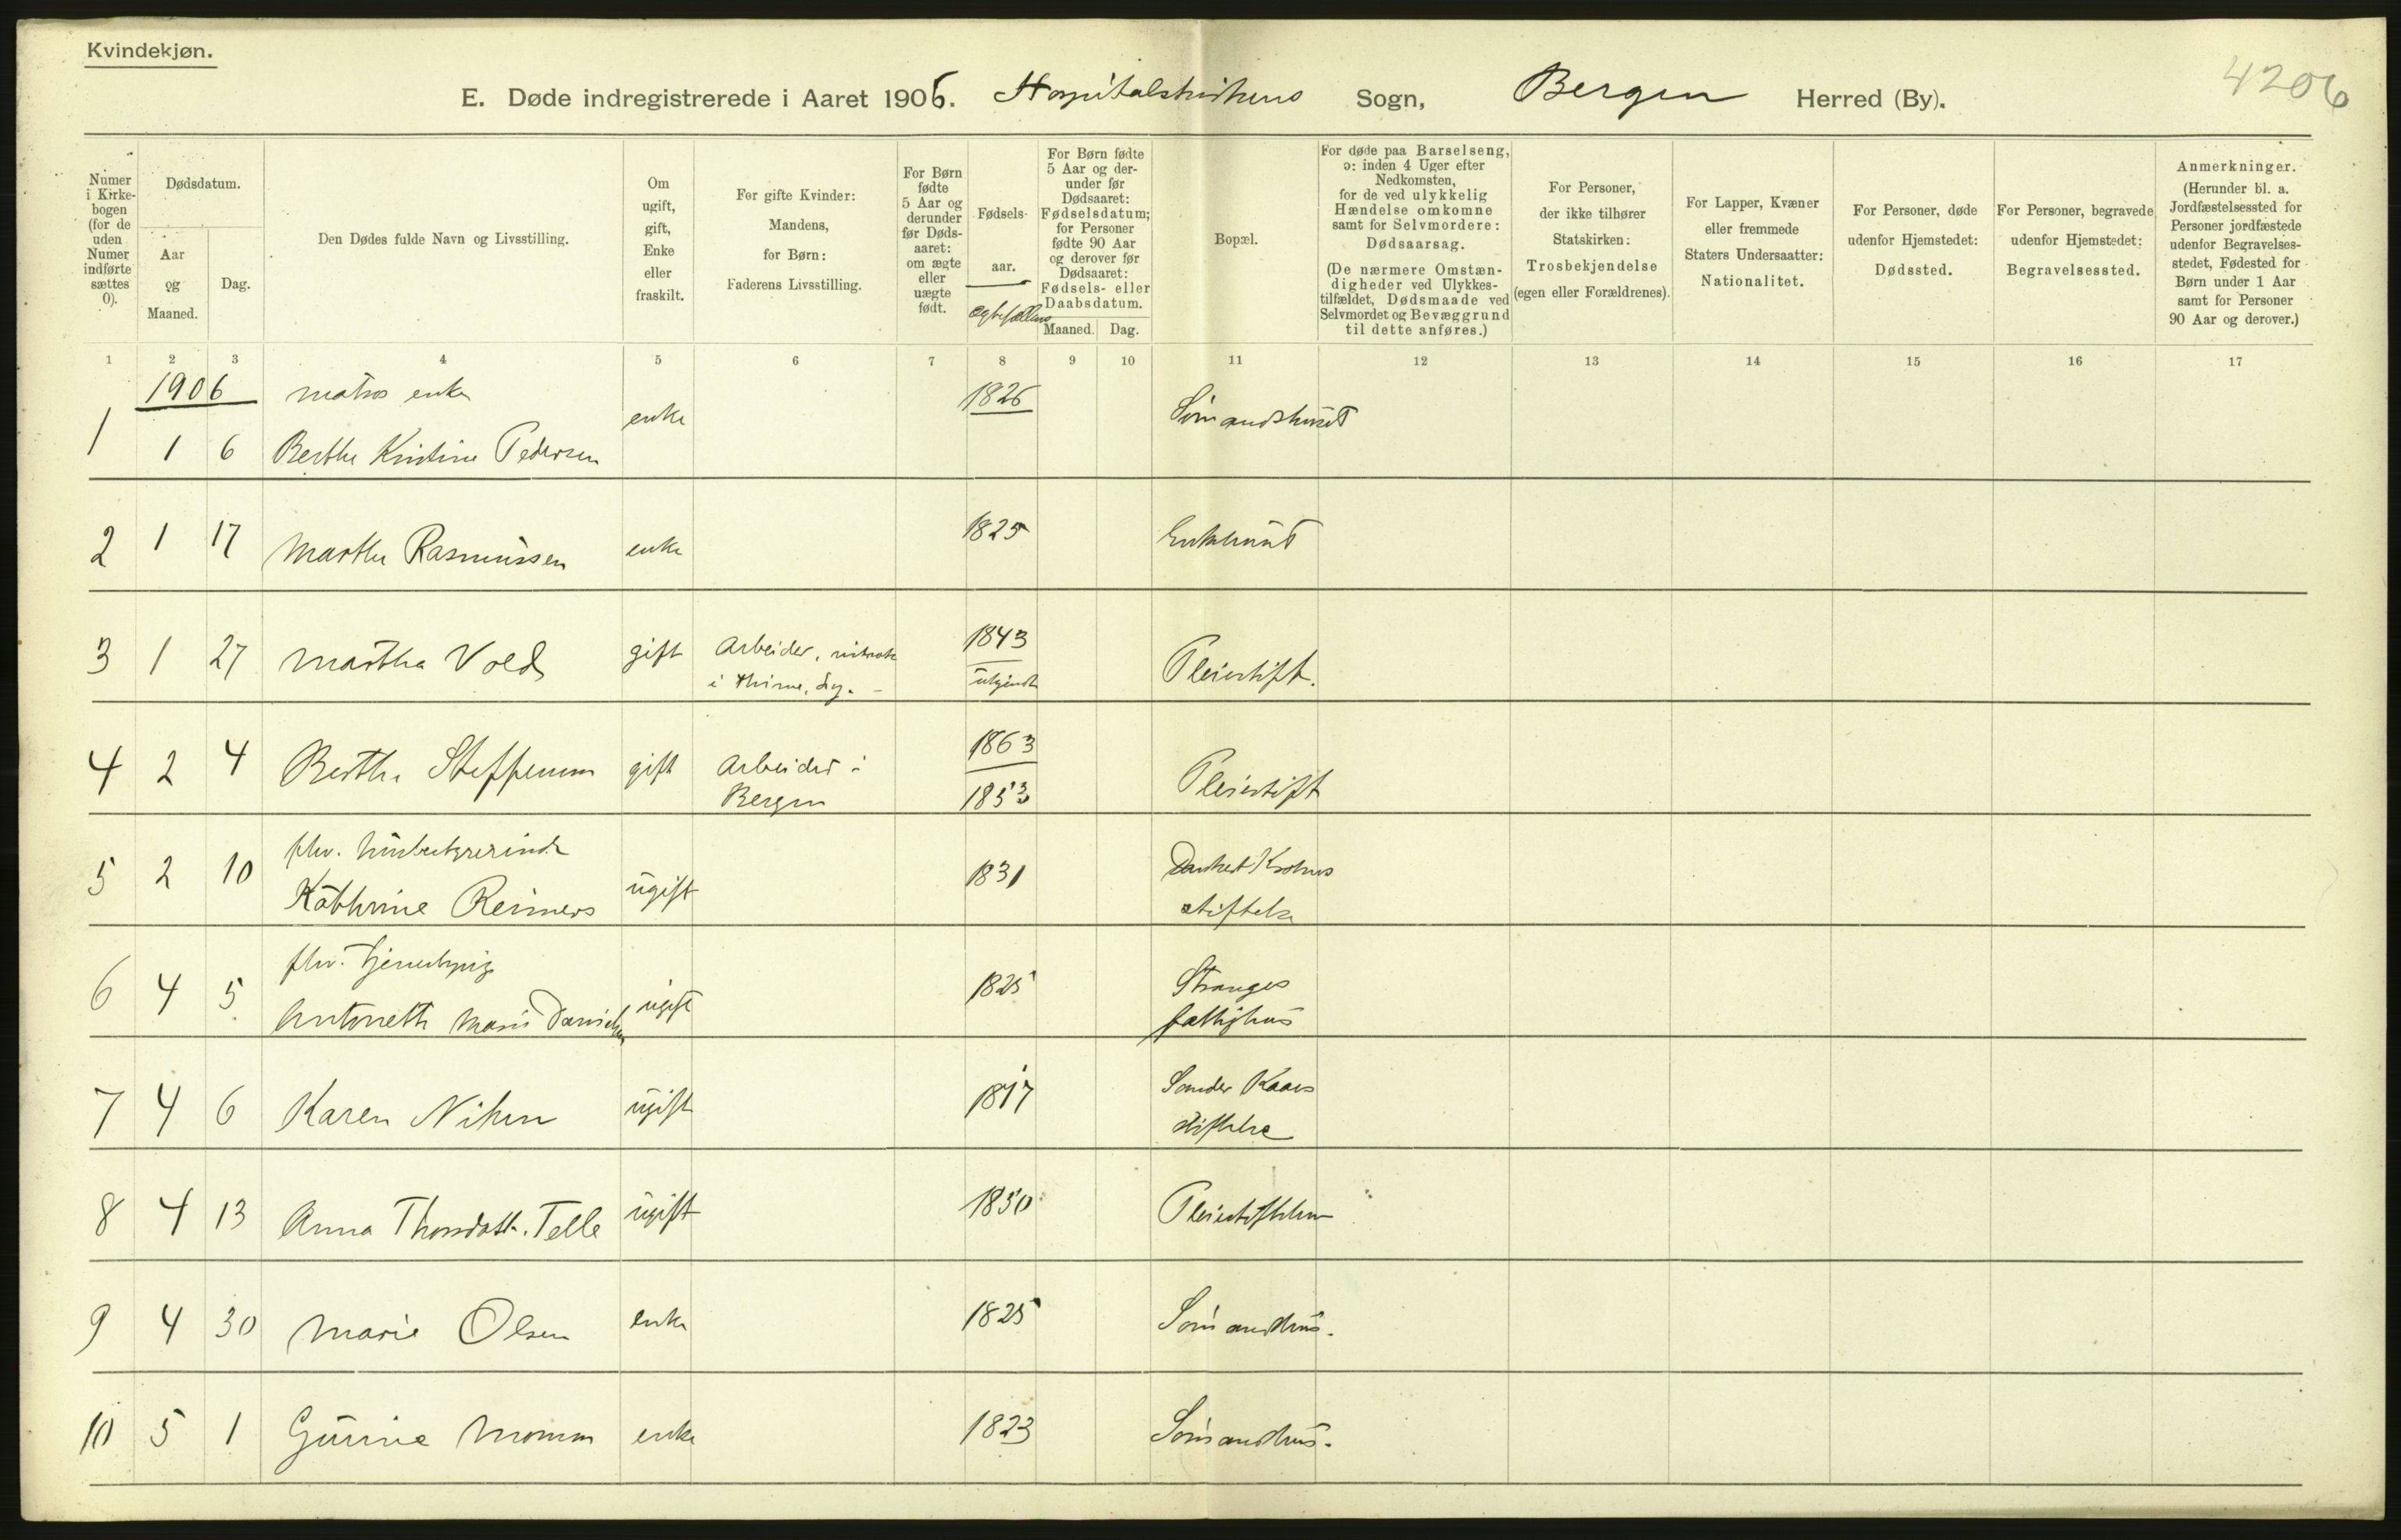 Kvindekjøn.
4206
E. Døde indregistrerede i Aaret 1906. Hospitalskirkens Sogn, Bergen Herred (By).
Numer i Kirkebogen (for de uden Numer indførte sættes 0).
Dødsdatum.
Aar og Maaned.
Dag.
Den Dødes fulde Navn og Livsstilling.
Om ugift, gift, Enke eller fraskilt.
For gifte Kvinder: Mandens, for Børn: Faderens Livsstilling.
For Børn fødte 5 Aar og derunder før Dødsaaret: om ægte eller uægte født.
Fødselsaar.
ægtefællens
For Børn fødte 5 Aar og derunder før Dødsaaret: Fødselsdatum; for Personer fødte 90 Aar og derover før Dødsaaret: Fødsels- eller Daabsdatum.
Maaned. Dag.
Bopæl.
For døde paa Barselseng, ɔ: inden 4 Uger efter Nedkomsten, for de ved ulykkelig Hændelse omkomne samt for Selvmordere: Dødsaarsag.
(De nærmere Omstændigheder ved Ulykkestilfældet, Dødsmaade ved Selvmordet og Bevæggrund til dette anføres.)
For Personer, der ikke tilhører Statskirken: Trosbekjendelse (egen eller Forældrenes).
For Lapper, Kvæner eller fremmede Staters Undersaatter: Nationalitet.
For Personer, døde udenfor Hjemstedet: Dødssted.
For Personer, begravede udenfor Hjemstedet: Begravelsessted.
Anmerkninger. (Herunder bl. a. Jordfæstelsessted for Personer jordfæstede udenfor Begravelsesstedet, Fødested for Børn under 1 Aar samt for Personer 90 Aar og derover.)
1 2 3 4 5 6 7 8 9 10 11 12 13 14 15 16 17
1906 matros enke 1826
1 1 6 Berthe Kristine Pedersen enke Sømandshuset
2 1 17 Marthe Rasmussen enke 1825 Enkehuset
3 1 27 Martha Vold gift Arbeider, 1843 Pleiestift.
i ukjendt
4 2 4 Berthe Steffensen gift Arbeider i 1863 Pleiestift
Bergen 1853
fhv. husbestyrerinde
5 2 10 Kathrine Reimers ugift 1831 Danckert Krohns
stiftelse
fhv. tjenestepige
6 4 5 Antonette Marie Danielsen ugift 1825 Stranges
fattighus
7 4 6 Karen Nilsen ugift 1817 Sander Kaaes
stiftelse
8 4 13 Anna Thorsdatt. Telle ugift 1850 Pleiestiftelsen
9 4 30 Marie Olsen enke 1825 Sømandshus.
10 5 1 Gurine Monsen enke 1823 Sømandshus.